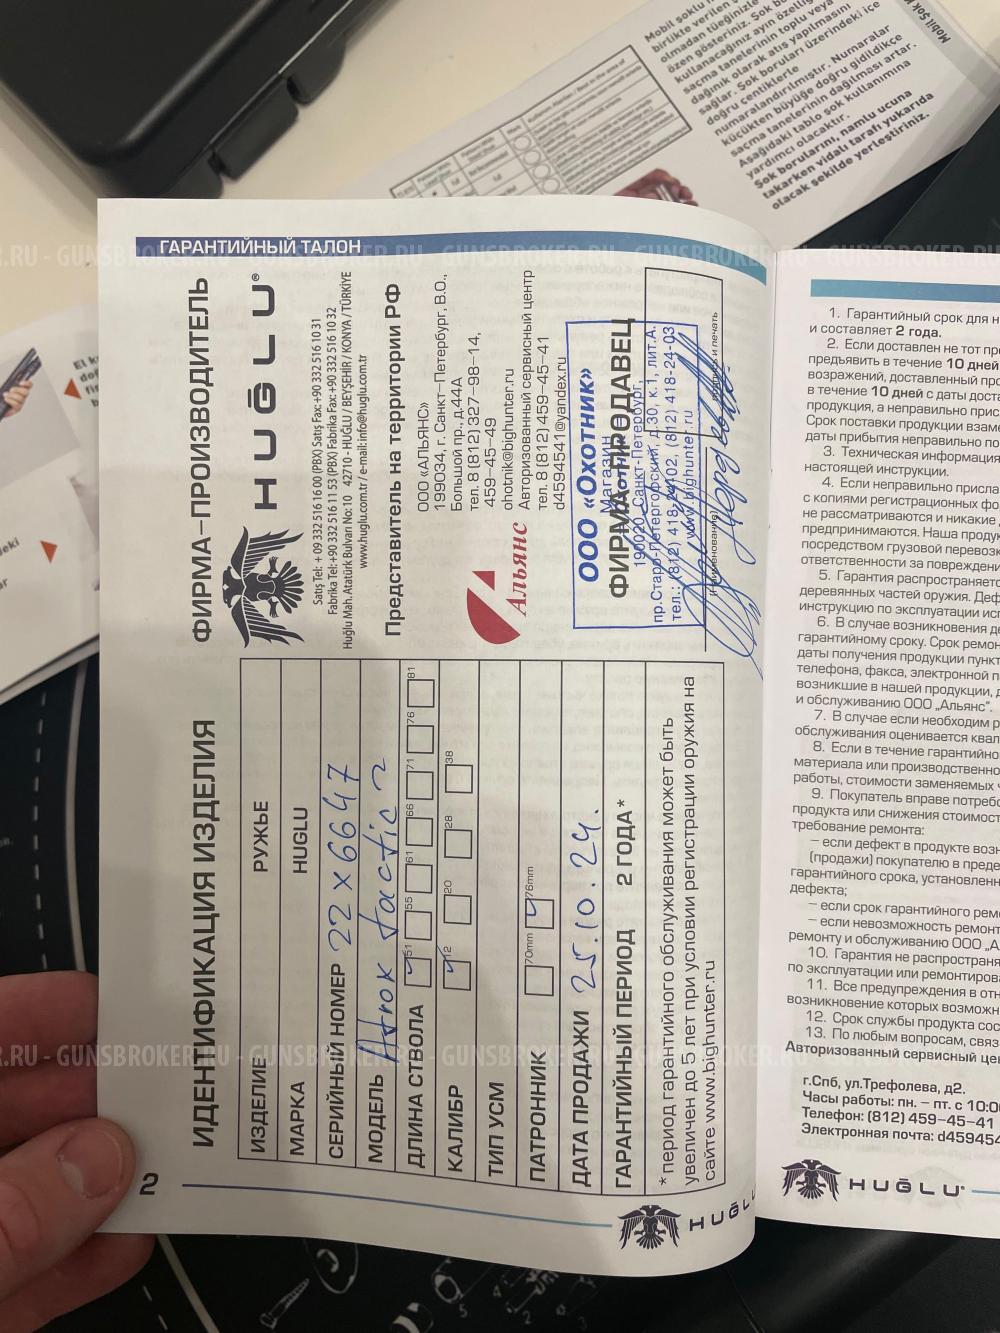 ГАРАНТИЙНЫЙ ТАЛОН
ИДЕНТИФИКАЦИЯ ИЗДЕЛИЯ
ИЗДЕЛИЕ РУЖЬЕ
МАРКА HUGLU
СЕРИЙНЫЙ НОМЕР 22x6647
МОДЕЛЬ Atrox tactic
ДЛИНА СТВОЛА 51 55 61 66 71 76 81
КАЛИБР 12 20 28 38
ТИП УСМ
ПАТРОННИК 70mm 76mm
ДАТА ПРОДАЖИ 25.10.24.
ГАРАНТИЙНЫЙ ПЕРИОД 2 ГОДА*
* период гарантийного обслуживания может быть
увеличен до 5 лет при условии регистрации оружия на
сайте www.bighunter.ru
ФИРМА-ПРОИЗВОДИТЕЛЬ
HUĞLU®
Satış Tel: + 09 332 516 16 00 (PBX) Satış Fax:+90 332 516 10 31
Fabrika Tel:+90 332 516 11 53 (PBX) Fabrika Fax:+90 332 516 10 32
Huğlu Mah. Atatürk Bulvarı No: 10 42710 - HUĞLU / BEYŞEHİR / KONYA / TÜRKİYE
www.huglu.com.tr / e-mail: info@huglu.com.tr
Представитель на территории РФ
Альянс
ООО «АЛЬЯНС»
199034, г. Санкт-Петербург, В.О.,
Большой пр., д.44А
тел. 8 (812)327-98-14,
459-45-49
ohotnik@bighunter.ru
Авторизованный сервисный центр
тел. 8 (812)459-45-41
d4594541@yandex.ru
ФИРМА-ПРОДАВЕЦ
ООО «Охотник»
Магазин
190020, Санкт-Петербург,
пр.Старо-Петергофский, д.30, к.1, лит.А.
тел.: (812) 418-24-02, (812) 418-24-03
www.bighunter.ru
(наименование)
подпись и печать
2
HUĞLU
1. Гарантийный срок для н
и составляет 2 года.
2. Если доставлен не тот пр
предъявить в течение 10 дней
возражений, доставленный пр
в течение 10 дней с даты дост
продукция, а неправильно прис
Срок поставки продукции взаме
даты прибытия неправильно по
3. Техническая информация
настоящей инструкции.
4. Если неправильно присла
с копиями регистрационных фо
не рассматриваются и никакие
предпринимаются. Наша продук
посредством грузовой перевозк
ответственности за повреждени
5. Гарантия распространяетс
деревянных частей оружия. Деф
инструкцию по эксплуатации исп
6. В случае возникновения де
гарантийному сроку. Срок ремон
даты получения продукции пункт
телефона, факса, электронной п
возникшие в нашей продукции, д
и обслуживанию ООО „Альянс".
7. В случае если необходим р
обслуживания оценивается квал
8. Если в течение гарантийно
материала или производственно
работы, стоимости заменяемых ч
9. Покупатель вправе потребо
продукта или снижения стоимост
требование ремонта:
– если дефект в продукте возн
(продажи) покупателю в преде
гарантийного срока, установленн
дефекта;
– если срок гарантийного рем
– если невозможность ремонт
ремонту и обслуживанию ООО „А
10. Гарантия не распространя
по эксплуатации или ремонтирова
11. Все предупреждения в отн
возникновение которых возможн
12. Срок службы продукта сос
13. По любым вопросам, связ
Авторизованный сервисный цен
г.Спб, ул.Трефолева, д2.
Часы работы: пн. – пт. с 10:00
Телефон: (812) 459-45-41
Электронная почта: d459454
HUĞLU®
Mobil soklu
birlikte verilen
olmadan tüeğinizle
özen gösteriniz. Şok
kullanacağınız ayın özelliğ
saçma tanelerinin toplu veya
dağınık olarak atış yapılmasını
sağlar. Şok boruları üzerindeki içe
doğru centiklerle
numaralandırılmıştır. Numaralar
küçükten büyüğe doğru gidildikçe
saçma tanelerinin dağılması artar.
Aşağıdaki tablo şok kullanımına
yardımcı olacaktır.
Şok borularını, namlu ucuna
takarken vidalı tarafı yukarıda
olacak şekilde yerleştiriniz.
GUNSBROKER.RU - GUNSBROKER.RU - GUNSBROKER.RU
GUNSBROKER.RU - GUNSBROKER.RU - GUNSBROKER.RU